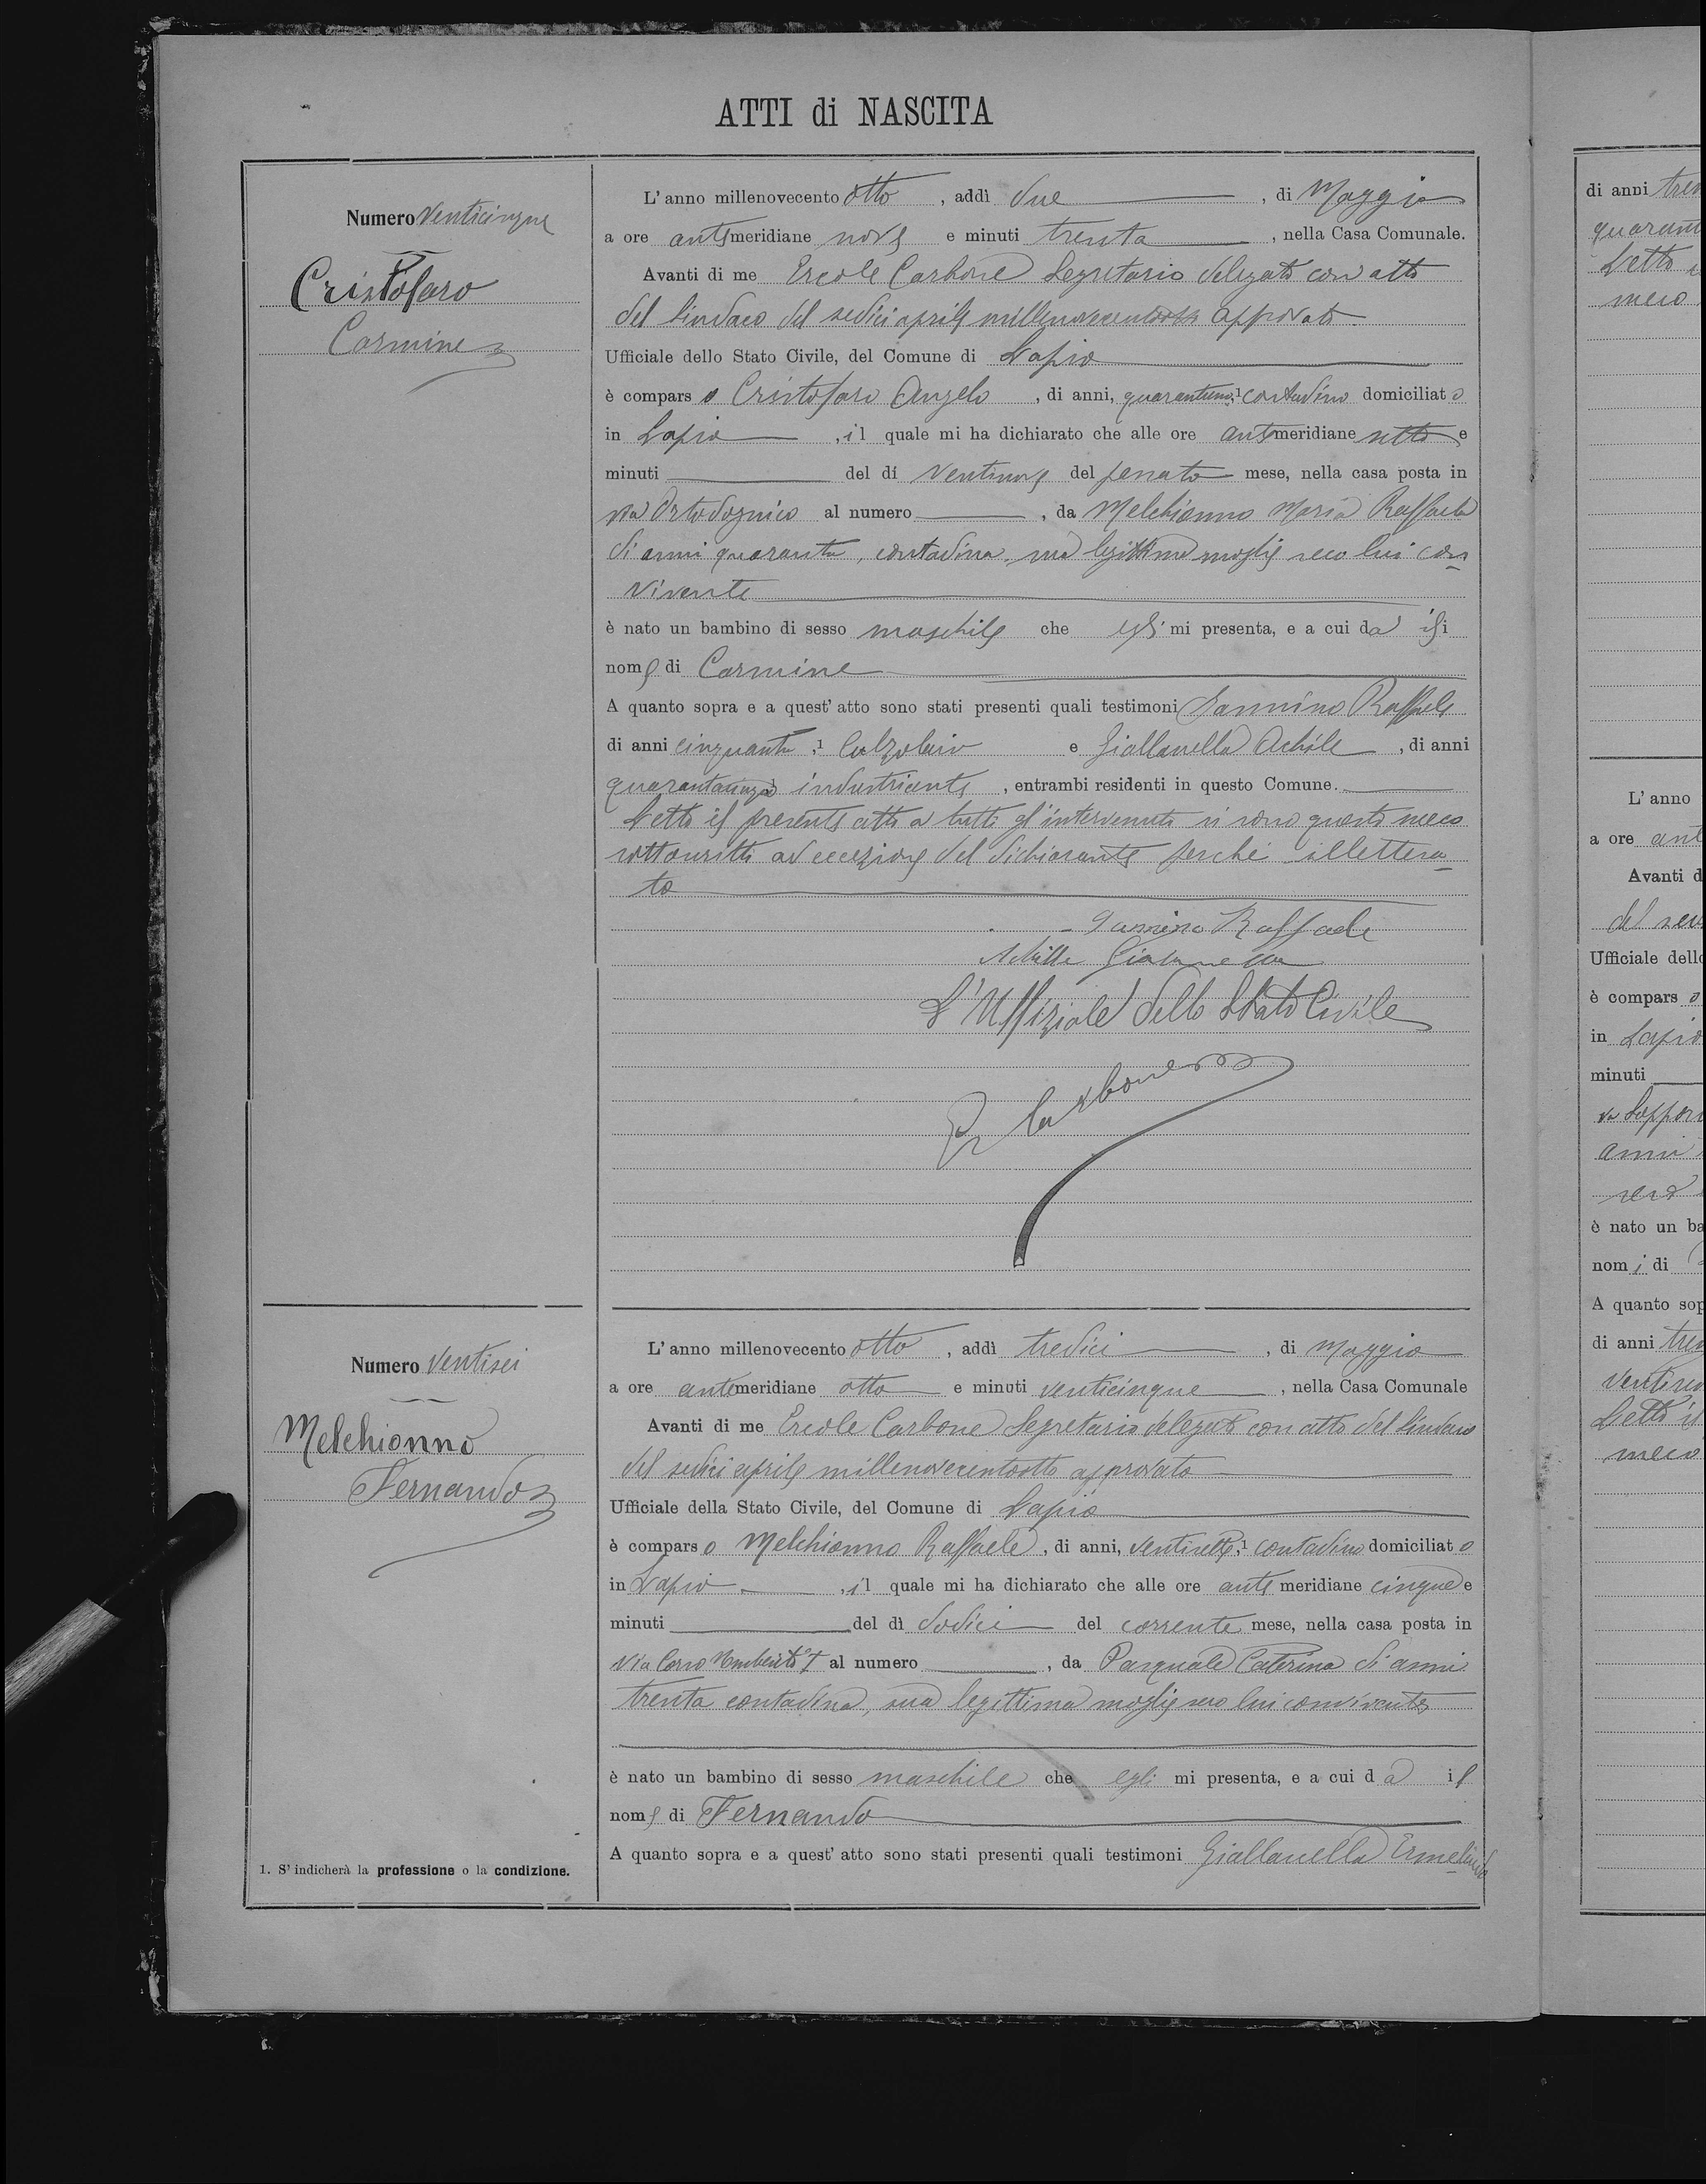 ATTI di NASCITA
Numero Venticinque
Cristofaro
Carmine
L'anno millenovecento otto, addì due, di Maggio
a ore antemeridiane nove e minuti trenta, nella Casa Comunale.
Avanti di me Ercole Carbone Segretario delegato con atto
del Sindaco del sedici aprile millenovecentootto approvato
Ufficiale dello Stato Civile, del Comune di Lapio
è comparso Cristofaro Angelo, di anni, quarantuno,1 contadino domiciliato
in Lapio, il quale mi ha dichiarato che alle ore antemeridiane sette e
minuti del dí ventinove del passato mese, nella casa posta in
via Ortodognico al numero, da Melchionno Maria Raffaela
di anni quaranta, contadina, sua legittima moglie seco lui con
vivente
è nato un bambino di sesso maschile che egli mi presenta, e a cui dà il
nome di Carmine
A quanto sopra e a quest' atto sono stati presenti quali testimoni Iannino Raffaele
di anni cinquanta,1 Calzolaio e Giallanella Achile, di anni
quarantacinque industriante, entrambi residenti in questo Comune.
Letto il presente atto a tutti gl'intervenuti si sono questi meco
sottoscritti ad eccezione del dichiarante perché illettera
to
Iannino Raffaele
Achille Giallanella
L'Uffiziale dello Stato Civile
E Carbone
Numero Ventisei
Melchionno
Fernando
L'anno millenovecento otto, addì tredici, di Maggio
a ore antemeridiane otto e minuti venticinque, nella Casa Comunale
Avanti di me Ercole Carbone Segretario delegato con atto del Sindaco
del sedici aprile millenovecentootto approvato
Ufficiale della Stato Civile, del Comune di Lapio
è comparso Melchionno Raffaele, di anni, ventisette,1 contadino domiciliato
in Lapio, il quale mi ha dichiarato che alle ore antemeridiane cinque e
minuti del dì dodici del corrente mese, nella casa posta in
Via Corso Umberto I al numero, da Pasquale Caterina di anni
trenta contadina, sua legittima moglie seco lui convivente
è nato un bambino di sesso maschile che egli mi presenta, e a cui dà il
nome di Fernando
A quanto sopra e a quest' atto sono stati presenti quali testimoni Giallanella Ermelindo
1. S' indicherà la professione o la condizione.
di anni
Letto
meco
L' anno
a ore ant
Avanti d
Ufficiale dello
è compars o
in Lapio
minuti
anni
è nato un ba
nom i di
A quanto sop
di anni
Letto il
meco